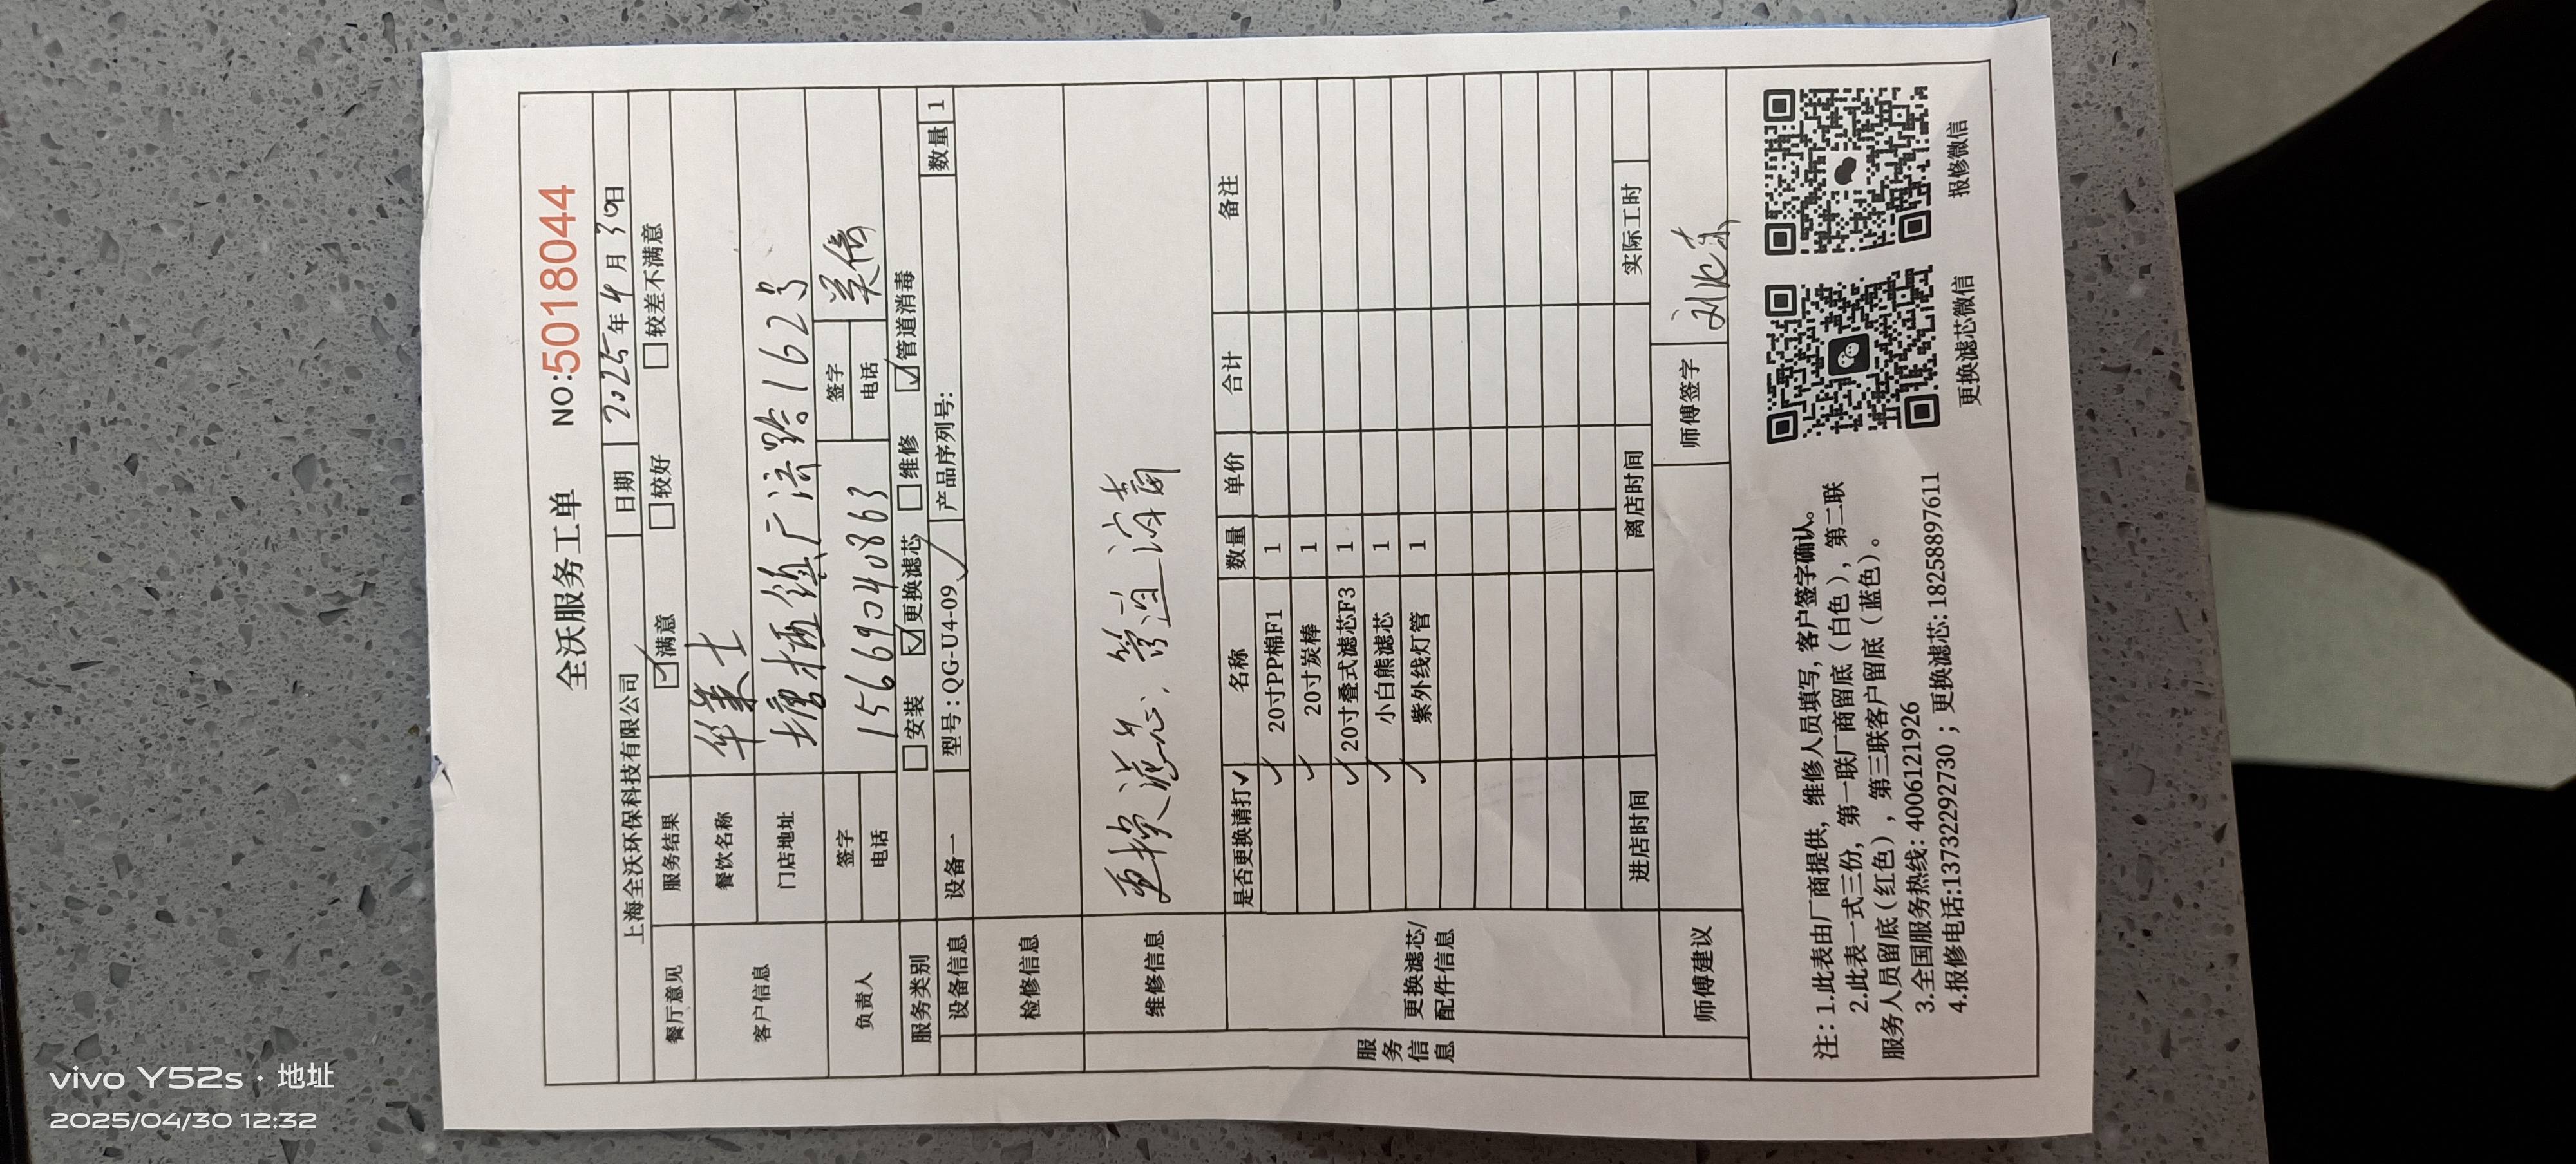 全沃服务工单 NO:5018044
上海全沃环保科技有限公司 日期 2025年4月30日
餐厅意见 服务结果 ☑满意 □较好 □较差不满意
客户信息 餐饮名称 华莱士
门店地址 塘栖镇广济路162号
负责人 签字 签字
电话 15669040863 电话
服务类别 □安装 ☑更换滤芯 □维修 ☑管道消毒
设备信息 设备一 型号:QG-U4-09 ✓ 产品序列号: 数量 1
检修信息
维修信息 更换滤芯.管道消毒
服务信息
更换滤芯/配件信息
是否更换请打✓ 名称 数量 单价 合计 备注
✓ 20寸PP棉F1 1
✓ 20寸炭棒 1
✓ 20寸叠式滤芯F3 1
✓ 小白熊滤芯 1
✓ 紫外线灯管 1
进店时间 离店时间 实际工时
师傅建议 师傅签字
注:1.此表由厂商提供,维修人员填写,客户签字确认。
2.此表一式三份,第一联厂商留底(白色),第二联
服务人员留底(红色),第三联客户留底(蓝色)。
3.全国服务热线:4006121926
4.报修电话:13732292730;更换滤芯:18258897611
更换滤芯微信 报修微信
vivo Y52s·地址
2025/04/30 12:32